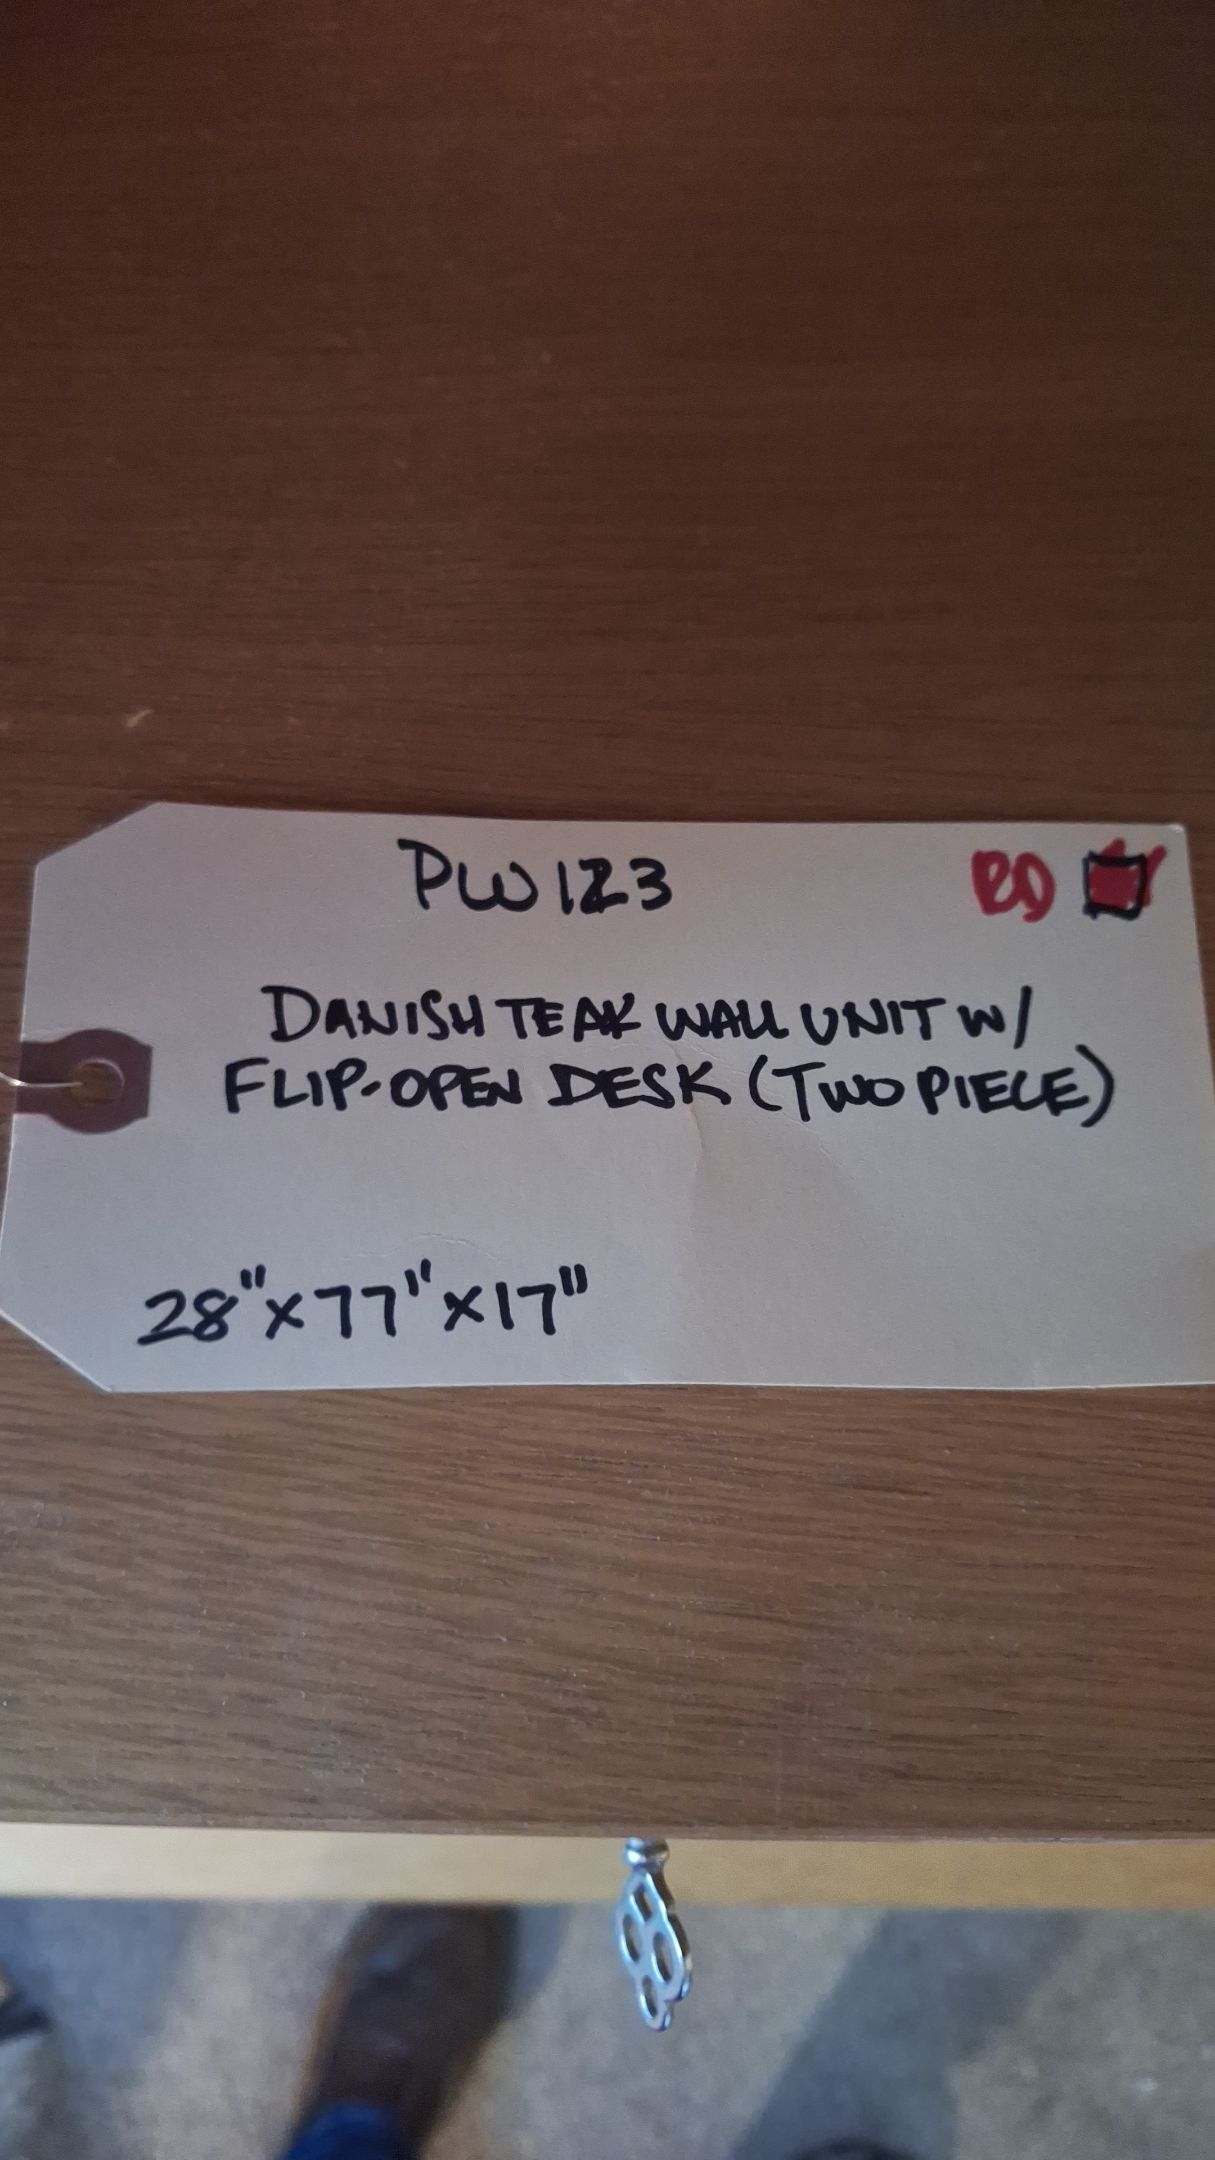 PW123 RD
DANISH TEAK WALL UNIT W/
FLIP-OPEN DESK (TWO PIECE)
28"x77"x17"